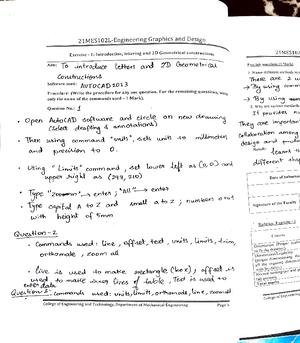 21MES102L-Engineering Graphics and Design
Exercise - 1: Introduction, lettering and 2D Geometrical constructions
Aim: To introduce letters and 2D Geometrical
constructions
Software used: AUTOCAD2023
Procedure: (Write the procedure for any one question. For the remaining questions, write
only the name of the commands used – 1 Mark).
Question No: 1
• Open AutoCAD software and circle on new drawing
(select drafting & annotations)
• Then using command "units", sets units to millimeter
and precision to 0.
• Using "Limits" command, set lower left as (0,0) and
upper right as (297,210)
• Type "zoom" → enter; "All" → enter
• Type capital A to Z and small a to z; numbers 0 to 9
with height of 5mm
Question-2
• Commands used: line, offset, text, units, limits, trim,
orthomode, zoom all
• line is used to make rectangle (box), offset is
used to make inner lines of table, Text is used to
enter data
Question-3 commands used: units, limits, orthomode, line, zoom all
College of Engineering and Technology, Department of Mechanical Engineering
Page 5
21MES102L
1. Name different methods
There are 2
→ By using
→ By using
It provides
2. Why are various standards
They are important
collaboration among
design and
learn t
different shap
Date of Submission
Signature of the Faculty
Criteria
College of Engineering